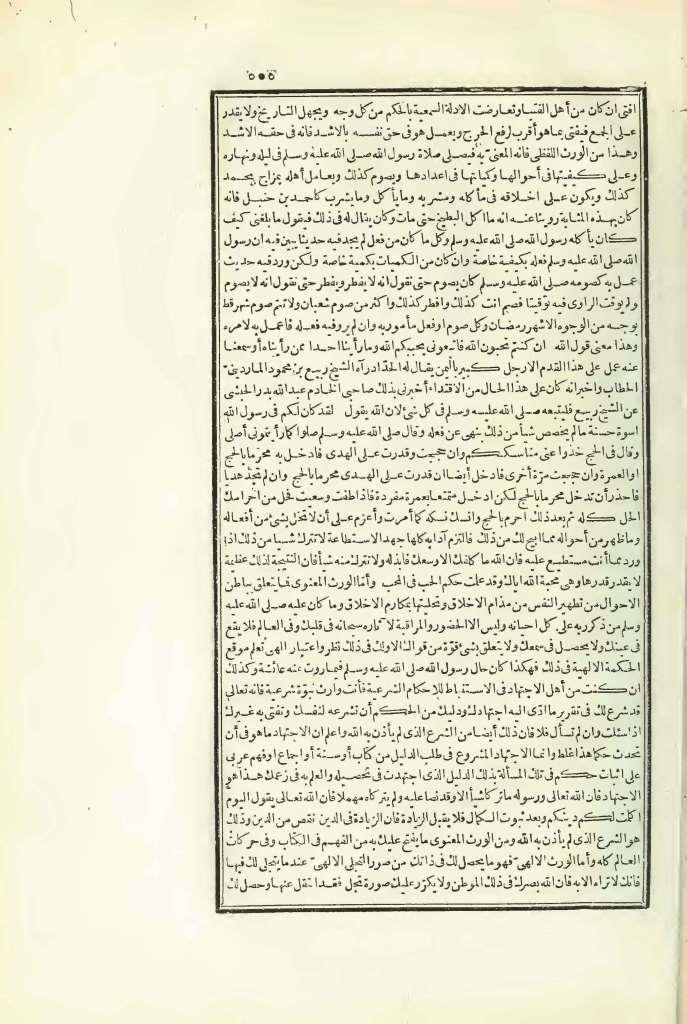 ٥٠٥
افتى ان كان من أهل الفتيا وتعارضت الادلة السمعية بالحكم من كل وجه ويجهل التاريخ ولا يقدر
على الجمع فيفتى بما هو أقرب لرفع الحرج ويعمل هو فى حق نفسه بالاشد فانه فى حقه الاشد
وهذا من الورث اللفظى فانه المعنى به فيصلى صلاة رسول الله صلى الله عليه وسلم فى ليله ونهاره
وعلى كيفيتها فى أحوالها وكمياتها فى اعدادها ويصوم كذلك ويعامل أهله بمزاح بمحمد
كذلك ويكون على اخلاقه فى مأكله ومشربه وما يأكل وما يشرب كاحمد بن حنبل فانه
كان بهذه المثابة روينا عنه انه ما اكل البطيخ حتى مات وكان يقال له فى ذلك فيقول ما بلغنى كيف
كان يأكله رسول الله صلى الله عليه وسلم وكل ما كان من فعل لم يجد فيه حديثا يبين فيه ان رسول
الله صلى الله عليه وسلم فعله بكيفية خاصة وان كان من الكميات بكمية خاصة ولكن ورد فيه حديث
عمل به كصومه صلى الله عليه وسلم كان يصوم حتى نقول انه لا يفطر ويفطر حتى نقول انه لا يصوم
ولم يوقت الراوى فيه توقيتا فصم انت كذلك وافطر كذلك واكثر من صوم شعبان ولا تتم صوم شهر قط
بوجه من الوجوه الا شهر رمضان وكل صوم او فعل مأمور به وان لم يرو فيه فعله فاعمل به لامره
وهذا معنى قول الله ان كنتم تحبون الله فاتبعونى يحببكم الله وما رأينا احدا ممن رأيناه أو سمعنا
عنه عمل على هذا القدم الا رجل كبير باليمن يقال له الحداد رآه الشيخ ربيع بن محمود الماردينى
الحطاب واخبر انه كان على هذا الحال من الاقتداء أخبرنى بذلك صاحبى الخادم عبد الله بدر الحبشى
عن الشيخ ربيع فليتبعه صلى الله عليه وسلم فى كل شئ لان الله يقول لقد كان لكم فى رسول الله
اسوة حسنة ما لم يخصص شيأ من ذلك بنهى عن فعله وقال صلى الله عليه وسلم صلوا كما رأيتمونى أصلى
وقال فى الحج خذوا عنى مناسككم وان حججت وقدرت على الهدى فادخل به محرما بالحج
او العمرة وان حججت مرّة أخرى فادخل أيضا ان قدرت على الهدى محرما بالحج وان لم تجد هديا
فاحذر أن تدخل محرما بالحج لكن ادخل متمتعا بعمرة مفردة فاذا طفت وسعيت فحل من احرامك
الحل كله ثم بعد ذلك احرم بالحج وانسك نسكه كما أمرت وأعزم على أن لا تخل بشئ من أفعاله
وما ظهر من أحواله مما ابيح لك من ذلك فالتزم آدابه كلها جهد الاستطاعة لا تترك شيأ من ذلك اذا
ورد مما أنت مستطيع عليه فان الله ما كلفك الا وسعك فابذله ولا تترك منه شيأ فان النتيجة لذلك عظيمة
لا يقدر قدرها وهى محبة الله اياك وقد علمت حكم الحب فى المحب وأما الورث المعنوى فما يتعلق بباطن
الاحوال من تطهير النفس من مذام الاخلاق وتحليتها بمكارم الاخلاق وما كان عليه صلى الله عليه
وسلم من ذكر ربه على كل احيانه وليس الا الحضور والمراقبة لا ثاره سبحانه فى قلبك وفى العالم فلا يقع
فى عينك ولا يحصل فى سمعك ولا يتعلق بشئ قوّة من قواك الا ولك فى ذلك نظر واعتبار الهى تعلم موقع
الحكمة الالهية فى ذلك فهكذا كان حال رسول الله صلى الله عليه وسلم فيما روت عنه عائشة وكذلك
ان كنت من أهل الاجتهاد فى الاستنباط للاحكام الشرعية فأنت وارث نبوّة شرعية فانه تعالى
قد شرع لك فى تقرير ما ادّى اليه اجتهادك ودليلك من الحكم أن تشرعه لنفسك وتفتى به غيرك
اذا سئلت وان لم تسأل فلا فان ذلك أيضا من الشرع الذى لم يأذن به الله واعلم ان الاجتهاد ما هو فى أن
تحدث حكما هذا غلط وانما الاجتهاد المشروع فى طلب الدليل من كتاب أو سنة أو اجماع او فهم عربى
على اثبات حكم فى تلك المسألة بذلك الدليل الذى اجتهدت فى تحصيله والعلم به فى زعمك هذا هو
الاجتهاد فان الله تعالى ورسوله ما ترك شيأ الا وقد نصا عليه ولم يتركاه مهملا فان الله تعالى يقول اليوم
اكملت لكم دينكم وبعد ثبوت الكمال فلا يقبل الزيادة فان الزيادة فى الدين نقص من الدين وذلك
هو الشرع الذى لم يأذن به الله ومن الورث المعنوى ما يفتح عليك به من الفهم فى الكتاب وفى حركات
العالم كله وأما الورث الالهى فهو ما يحصل لك فى ذاتك من صور التجلى الالهى عند ما يتجلى لك فيها
فانك لا تراه الا به فان الله بصرك فى ذلك الموطن ولا يكرّر عليك صورة تجل فقد انتقل عنها وحصل لك